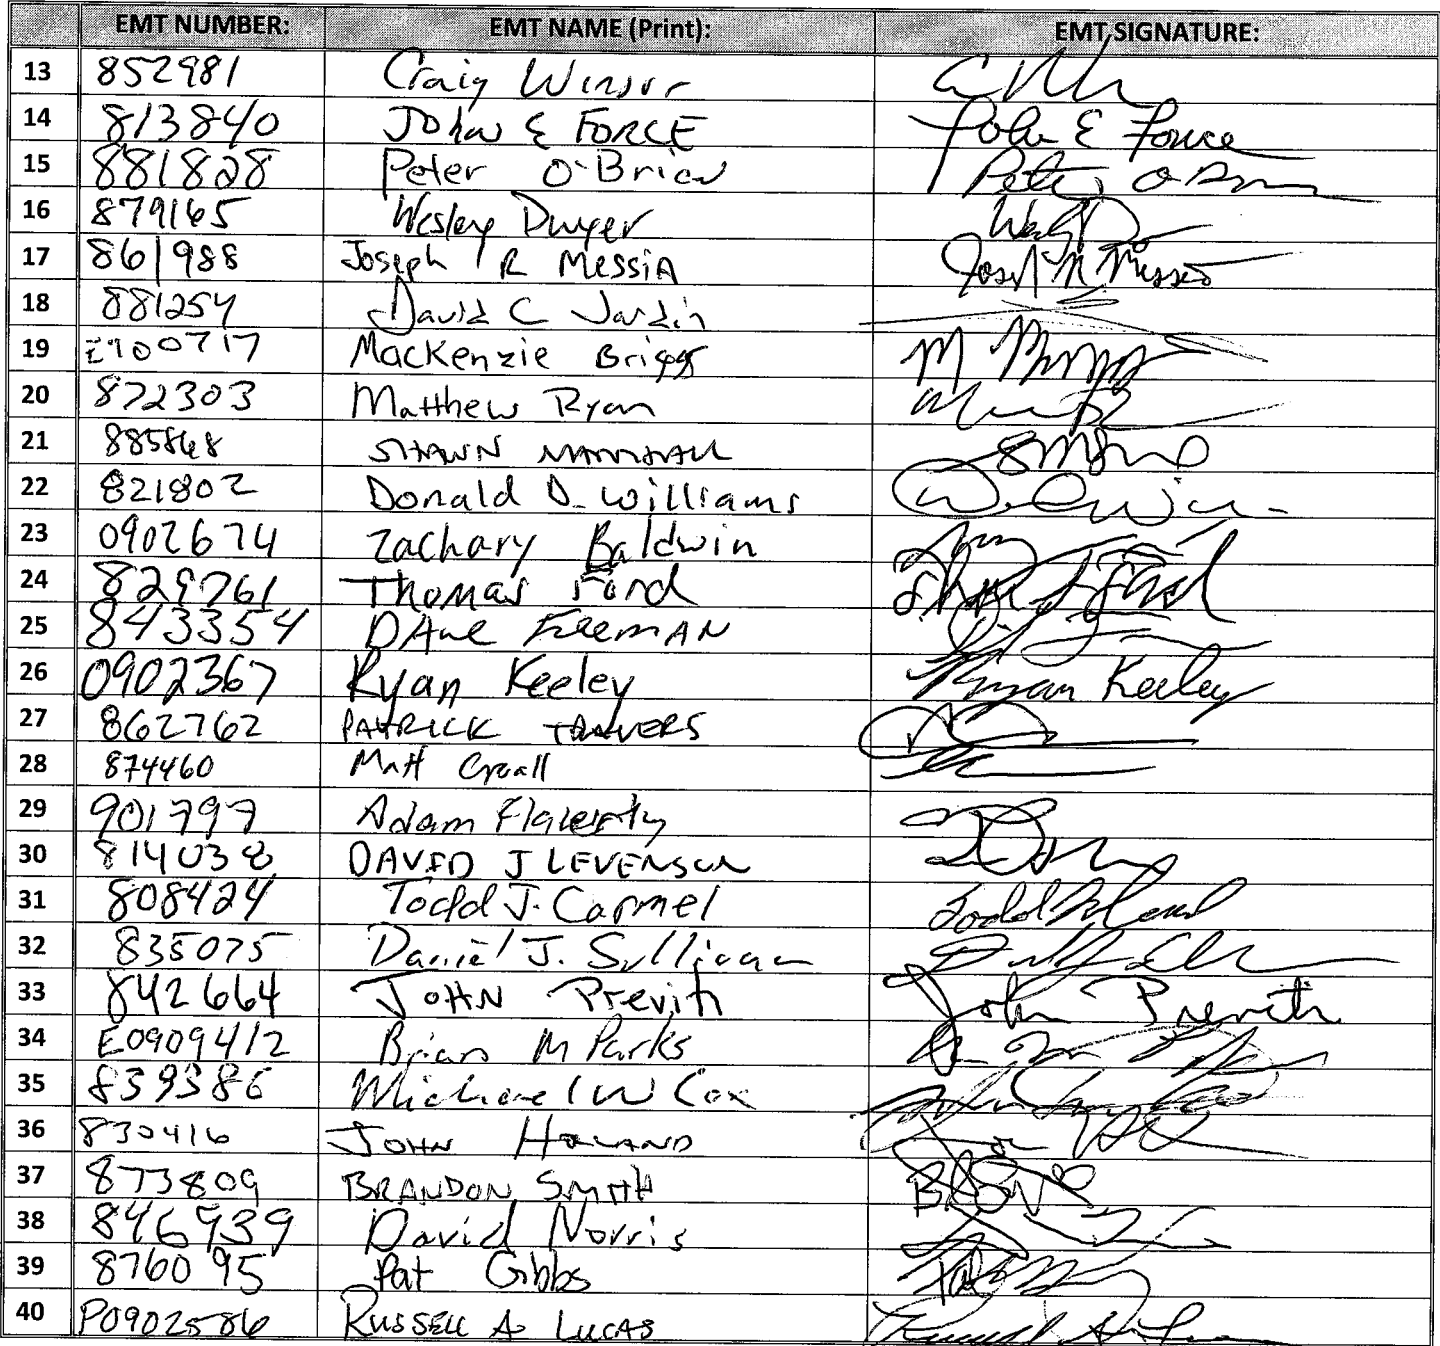 EMT NUMBER: EMT NAME (Print): EMT SIGNATURE:
13 852981 Craig Winsor
14 813840 John E FORCE John E Force
15 881828 Peter O'Brien Peter
16 879165 Wesley Dwyer
17 861988 Joseph R MESSIA
18 881254 David C Jardin
19 E900717 Mackenzie Briggs M Briggs
20 872303 Matthew Ryan
21 885868 SHAWN MARSHALL
22 821802 Donald D. Williams
23 0902674 Zachary Baldwin
24 829761 Thomas Ford
25 843354 DAVE FREEMAN
26 0902367 Ryan Keeley Ryan Keeley
27 862762 PATRICK TRAVERS
28 874460 Matt Croall
29 901797 Adam Flaherty
30 814038 DAVID J LEVENSON
31 808424 Todd J. Carmel
32 835075 Daniel J. Sullivan
33 842664 JOHN Previti John Previti
34 E0909412 Brian M Parks
35 839386 Michael W Cox
36 830416 JOHN HOLLAND
37 873809 BRANDON SMITH
38 846939 David Norris
39 876095 Pat Gibbs
40 P0902586 RUSSELL A LUCAS